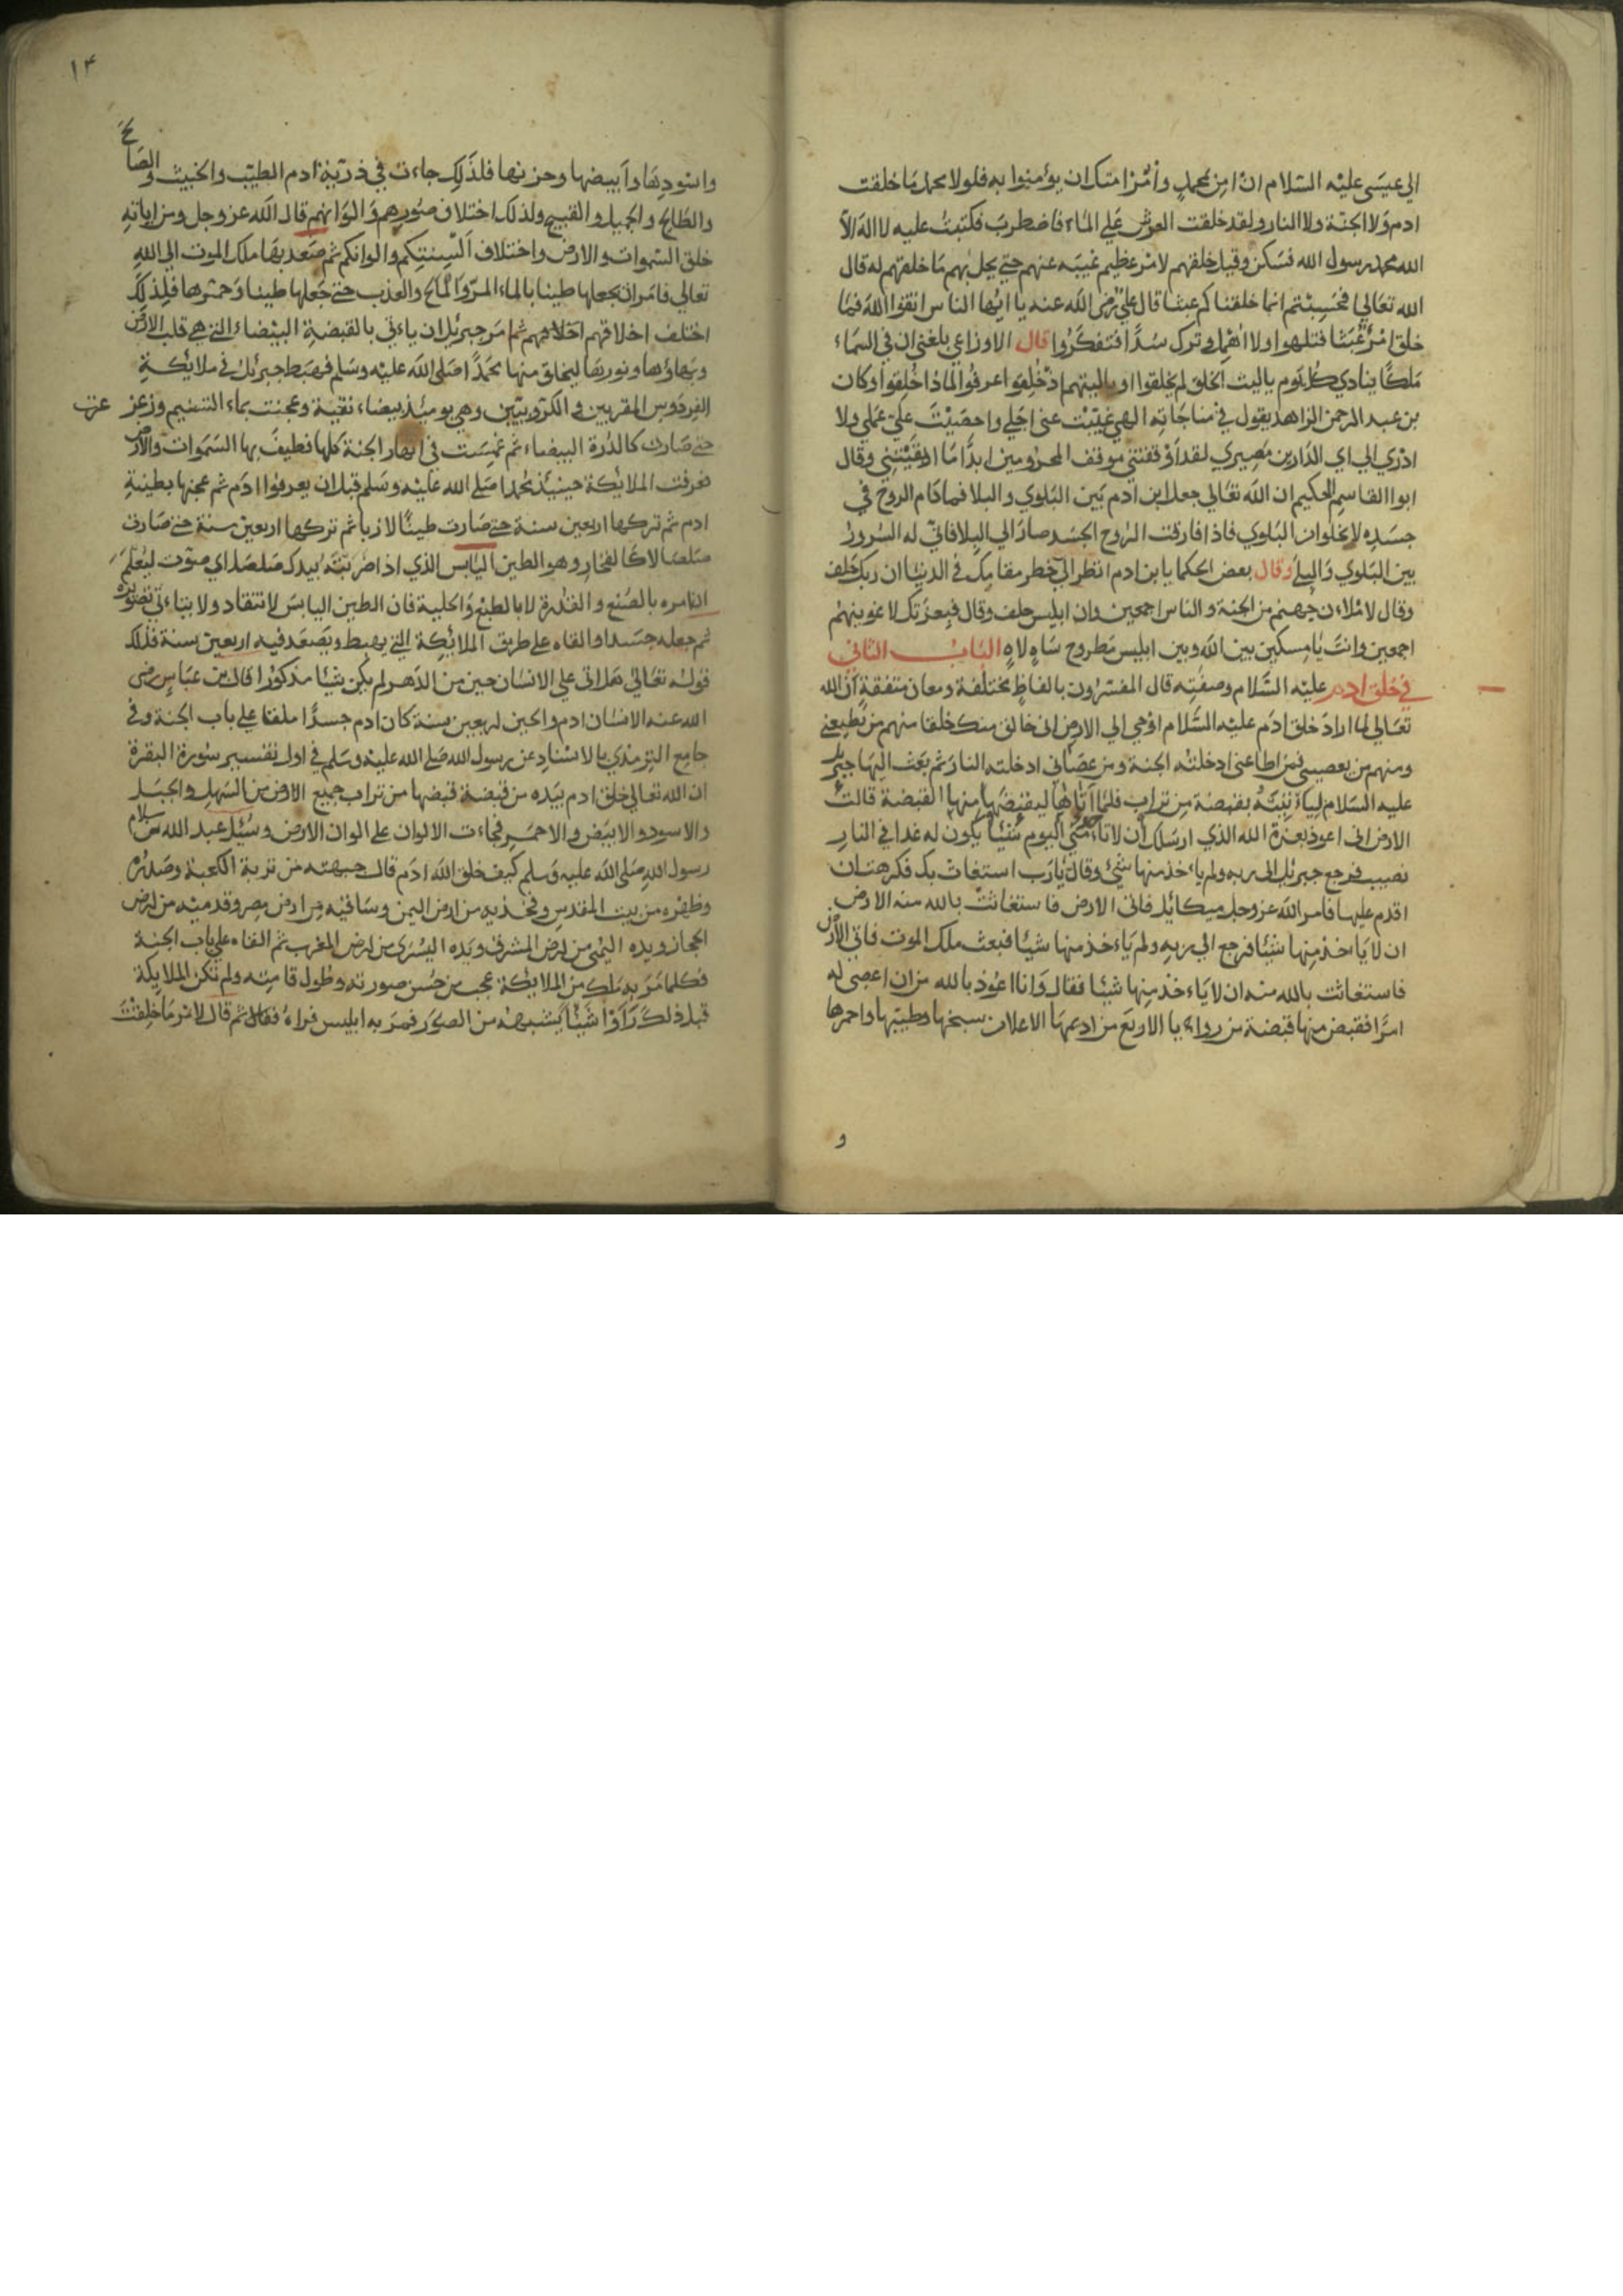 الي عيسَى عليْه السَّلام ان امِن بمحمدٍ وأمُرْ امتك ان يوءمنوا به فلولا محمد مَا خلقت
ادم وَلا الجنّة ولا النار ولقد خلقت العرش عَلي الماء فاضطربَ فكتبتُ عليه لا اله الاّ
الله محمد رسول الله فسَكن وقيل خلقهم لامْر عظيم غيبَه عنهم حتي يحل بهم مَا خلقهم له قال
الله تعَالي افحَسِبْتم انما خلقناكم عبثا قال علي رضي الله عنه يا ايّها الناس اتقوا الله فمَا
خلق امْرؤ عَبَثا فتلهوا ولا اهْمل وترك سُدًا فتفكَرُوا قال الاوزاعي بلغني ان في السمَاء
مَلكًا ينادي كُل يَوم ياليث الخلق لم يخلقوا وياليتهم اذ خُلِقوا عرفوا لماذا خُلِقوا وكان
بن عبد الرحمن الزاهد يقول في مناجَاته الهي غيّبْت عني اجَلي واحصَيْت عَليّ عَملي ولا
ادْري الي اي الدّارين مَصِيري لقد اَوْقفتني موقف المحزومين ابدًا مَا ابقيْتني وقال
ابوا القاسِم الحكيم ان الله تعَالي جعل ابن ادم بَين البَلوي والبلا فما دَام الروح في
جسَدِه لا يخلوا من البَلوي فاذا فارقت الرُوح الجسَد صارَ الي البِلا فانّي له السُرورُ
بين البَلوي وَالبِلي وقال بعض الحكما يا بن ادم انظر الي خطر مقامِك في الدنيا ان ربك حَلف
وقال لامْلاءن جهنم من الجنة والناس اجمعين وان ابليس حلف وقال فبِعزتك لاغوينهم
اجمعين وانتَ يَا مِسكين بين الله وبين ابليس مَطروح سَاهٍ لاهٍ البَابُ الثاني
في خلق ادم عليْه السَّلام وصفتِه قال المفسّرُون بالفاظٍ مختلفة ومعان متفقة ان الله
تعَالي لما ارادَ خلق ادَم عليْه السَّلام اوْحي الي الارض اني خالق منك خلقا منهم من يُطيعني
ومنهم من يعصيني فمَن اطاعني ادخلته الجنة ومن عصَاني ادخلته النارَ ثم بَعَث اليهَا جبريل
عليه السَلام لِياءتيَهُ بقبضة من تراب فلمّا اتاها ليقبضَ منها القبضة قالت
الارض اني اعوذ بعزة الله الذي ارسَلك ان لا تاءخذ مني اليوم شيْئا يكون له غدا في النار
نصيب فرجع جبريل الي ربه ولم ياءخذ منها شئ وقال يَارَب استغاثت بك فكرهت ان
اقدم عليها فامر الله عز وجل ميكائل فاتي الارض فاستغاثت بالله منه الارض
ان لا يَاءخذ منها شيئا فرجع الي ربه ولم يَاءخذ منها شيئا فبعث ملك الموت فاتي الارض
فاستغاثت بالله منه ان لا يَاءخذ منها شيئا فقال وَانا اعوذ بالله من ان اعصي له
امرًا فقبض منها قبضة من زواءيا الاربَع من اديمهَا الاعلا من سبخهَا وطيّبها واحمرها
و
١٣
واسْودهَا وابيضها وحزنها فلذَلك جاءت في ذريّة ادم الطيّب والخبيث والصَالح
والطَالح والجميل والقبيح ولذلك اختلاف صُوَرهم وَالوَانهم قال الله عز وجل ومن اياته
خلق السّموات والارض واختلاف السِنتِكم والوانكم ثم صَعد بهَا ملك الموت الي الله
تعالي فامَر ان يجعلها طينا بالماء المرّ والمَالح والعذب حتي جَعلها طينا وَخمرها فلِذلك
اختلف اخلاقهم ثم امَر جبريل ان ياءتي بالقبضةِ البيْضاء التي هي قلب الارض
وبهَاؤها ونورهَا ليخلق منها محمَدًا صَلي الله عليْه وسَلم فهبَط جبريل في ملائكةِ
الفردَوس المقربين والكرّوبيّين وهي يومئذ بيضاء نقية وعجنت بماء التسنيم وزعز عزت
حتي صَارت كالدُرة البيضاء ثم غمِسَت في انهار الجنة كلها فطيفَ بها السّموات والارض
فعرفت الملائكة حينئذ محمدا صَلي الله عليْه وسَلم قبل ان يعرفوا ادَم ثم عجنها بطينةِ
ادم ثم تركها اربعين سنة حتي صَارت طينًا لازبا ثم تركها اربعين سنة حتي صَارت
صَلصَالا كالفخار وهو الطين اليَابس الذي اذا ضرَبْتَهُ بيدك صَلصَل اي صوّت ليُعلَم
ان امره بالصُنع والقدرة لا بالطبْع وَالحلية فان الطين اليابسَ لا تنقاد ولا يتاءتي تصويره
ثم جعله جسَدا والقاه علي طريق الملائكة التي يهبط ويَصَعَد فيه اربعين سنة فذلك
قوله تعَالي هَل اتي علي الانسَان حين من الدَهر لم يكن شيئا مذكورًا قال بن عبَاس رضي
الله عنه الانسَان ادم والحين اربعين سنة كان ادم جسدًا ملقا علي باب الجنة وفي
جامِع الترمذي بالاسْنادِ عن رسول الله صَلي الله عليْه وسَلم في اول تفسير سُورة البقرة
ان الله تعالي خلق ادم بيَده من قبضة قبضها من تراب جميع الارض من السَهل والجبَل
والاسود والابيَض والاحمَر فجاءت الالوان علي الوان الارض وسُئل عبد الله بن سلام
رسول الله صَلي الله عليه وَسَلم كيف خلق الله ادَم قال جبهته من تربة الكعبة وصَدرُه
وظهره من بيت المقدس وفخذيه من ارض اليمن وسَاقيْه من ارض مِصر وقدميْه من ارض
الحجاز ويده اليُمني من ارض المشرق ويَده اليُسرَي من ارض المغرب ثم القاه علي باب الجنة
فكلما مَر به مَلك من الملائكة عجب من حُسن صورته وطول قامَتِه ولم تكن الملائكة
قبل ذلك رَاَوْا شَيْئًا يُشبهه من الصوَر فمَر به ابليس فراءهُ فقال ثم قال لامْر مَا خلِقتَ